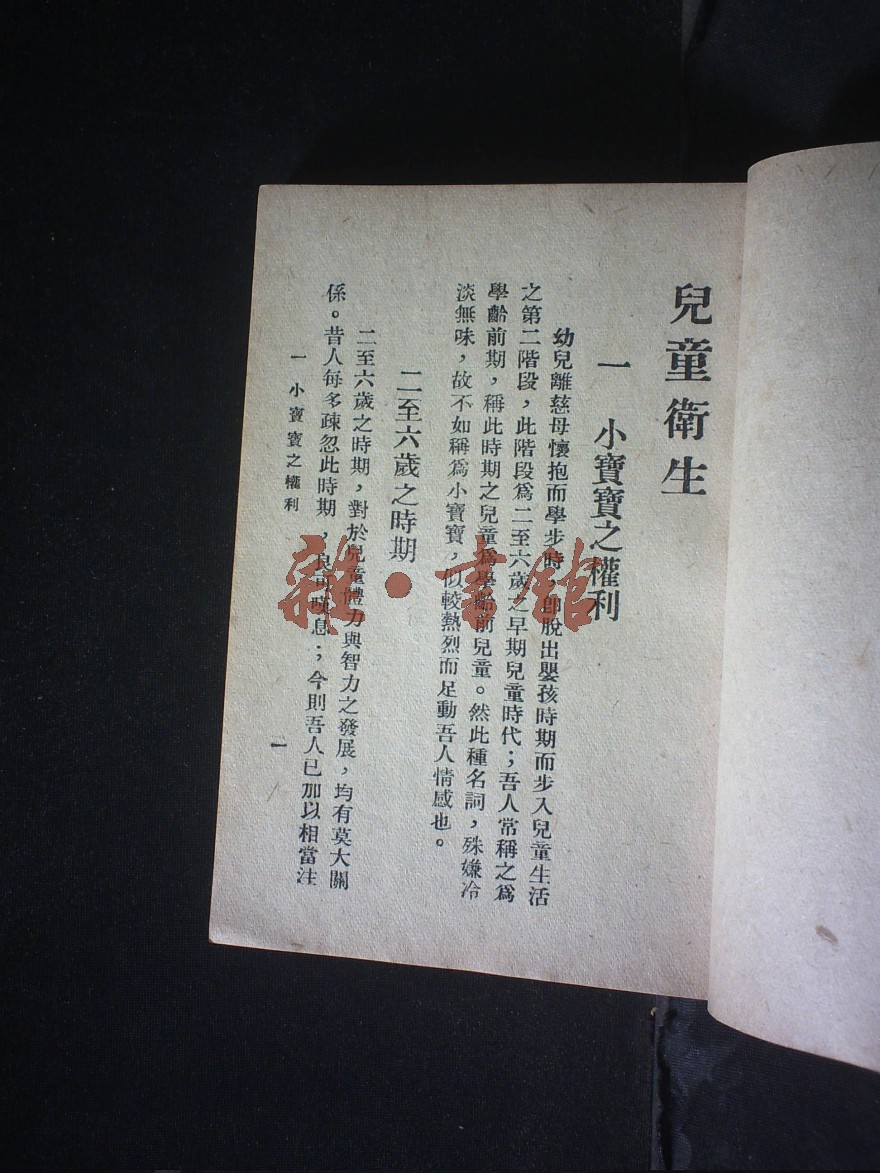 兒童衛生
一　小寶寶之權利
幼兒離慈母懷抱而學步時，卽脫出嬰孩時期而步入兒童生活
之第二階段，此階段爲二至六歲之早期兒童時代；吾人常稱之爲
學齡前期，稱此時期之兒童爲學齡前兒童。然此種名詞，殊嫌冷
淡無味，故不如稱爲小寶寶，似較熱烈而足動吾人情感也。
二至六歲之時期
二至六歲之時期，對於兒童體力與智力之發展，均有莫大關
係。昔人每多疎忽此時期，良可嘆息；今則吾人已加以相當注
一　小寶寶之權利
一
雜·書館